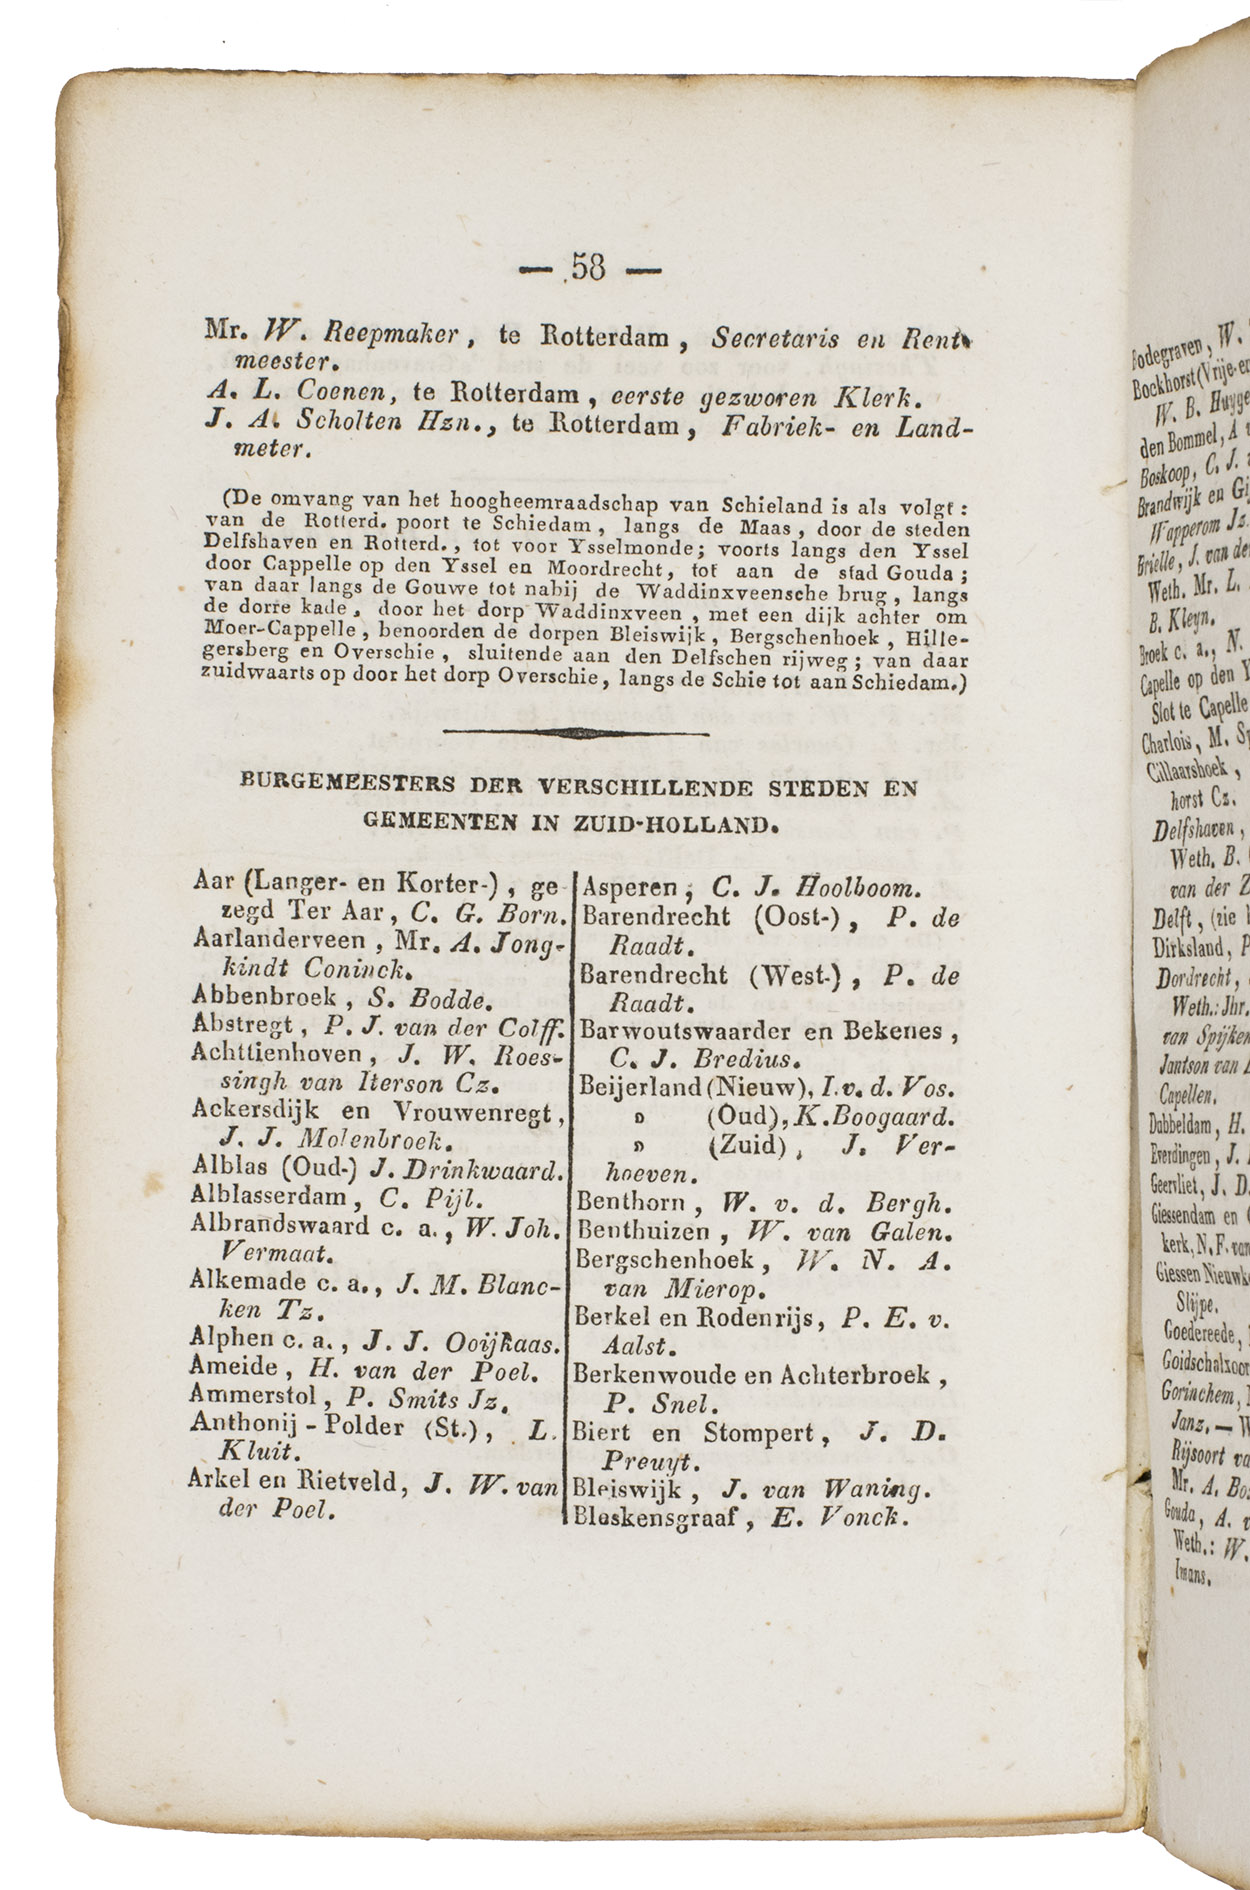 — 58 —
Mr. W. Reepmaker, te Rotterdam, Secretaris en Rent-
meester.
A. L. Coenen, te Rotterdam, eerste gezworen Klerk.
J. A. Scholten Hzn., te Rotterdam, Fabriek- en Land-
meter.
(De omvang van het hoogheemraadschap van Schieland is als volgt:
van de Rotterd. poort te Schiedam, langs de Maas, door de steden
Delfshaven en Rotterd., tot voor Ysselmonde; voorts langs den Yssel
door Cappelle op den Yssel en Moordrecht, tot aan de stad Gouda;
van daar langs de Gouwe tot nabij de Waddinxveensche brug, langs
de dorre kade, door het dorp Waddinxveen, met een dijk achter om
Moer-Cappelle, benoorden de dorpen Bleiswijk, Bergschenhoek, Hille-
gersberg en Overschie, sluitende aan den Delfschen rijweg; van daar
zuidwaarts op door het dorp Overschie, langs de Schie tot aan Schiedam.)
BURGEMEESTERS DER VERSCHILLENDE STEDEN EN
GEMEENTEN IN ZUID-HOLLAND.
Aar (Langer- en Korter-), ge-
zegd Ter Aar, C. G. Born.
Aarlanderveen, Mr. A. Jong-
kindt Coninck.
Abbenbroek, S. Bodde.
Abstregt, P. J. van der Colff.
Achttienhoven, J. W. Roes-
singh van Iterson Cz.
Ackersdijk en Vrouwenregt,
J. J. Molenbroek.
Alblas (Oud-) J. Drinkwaard.
Alblasserdam, C. Pijl.
Albrandswaard c. a., W. Joh.
Vermaat.
Alkemade c. a., J. M. Blanc-
ken Tz.
Alphen c. a., J. J. Ooijkaas.
Ameide, H. van der Poel.
Ammerstol, P. Smits Jz.
Anthonij-Polder (St.), L.
Kluit.
Arkel en Rietveld, J. W. van
der Poel.
Asperen, C. J. Hoolboom.
Barendrecht (Oost-), P. de
Raadt.
Barendrecht (West-), P. de
Raadt.
Barwoutswaarder en Bekenes,
C. J. Bredius.
Beijerland (Nieuw), I. v. d. Vos.
» (Oud), K. Boogaard.
» (Zuid), J. Ver-
hoeven.
Benthorn, W. v. d. Bergh.
Benthuizen, W. van Galen.
Bergschenhoek, W. N. A.
van Mierop.
Berkel en Rodenrijs, P. E. v.
Aalst.
Berkenwoude en Achterbroek,
P. Snel.
Biert en Stompert, J. D.
Preuyt.
Bleiswijk, J. van Waning.
Bleskensgraaf, E. Vonck.
Bodegraven, W.
Bockhorst (Vrije- en
W. B. Huyge
den Bommel, A
Boskoop, C. J.
Brandwijk en Gi
Wapperom Jz.
Brielle, J. van de
Weth. Mr. L.
B. Kleyn.
Broek c. a., N.
Capelle op den Y
Slot te Capelle
Charlois, M. Sp
Cillaarshoek,
horst Cz.
Delfshaven,
Weth. B.
van der Z
Delft, (zie
Dirksland, P
Dordrecht,
Weth.: Jhr.
van Spijken
Jantson van
Capellen.
Dubbeldam, H.
Everdingen, J.
Geervliet, J. D.
Giessendam en
kerk, N. F. van
Giessen Nieuwk
Slijpe.
Goedereede,
Goidschalxoor
Gorinchem,
Janz. — W
Rijsoort va
Mr. A. Bo
Gouda, A. v
Weth.: W.
Imans.